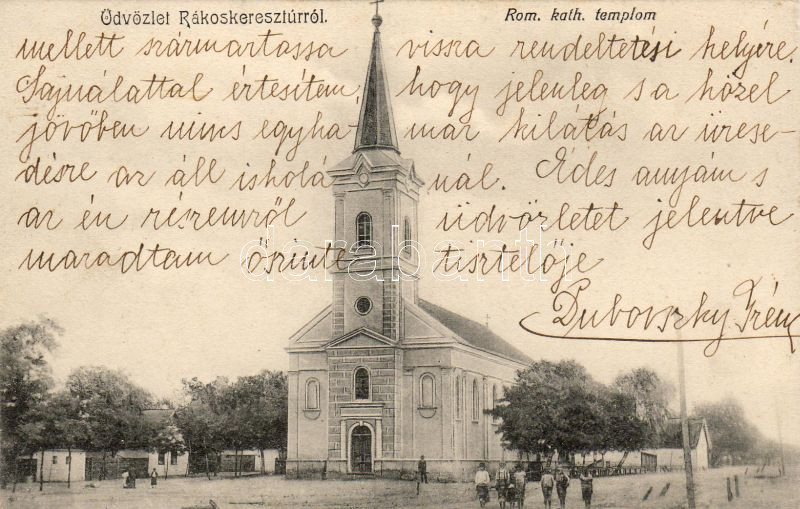 Üdvözlet Rákoskeresztúrról.
Rom. kath. templom
mellett szármartassa vissza rendeltetési helyére.
Sajnálattal értesítem hogy jelenleg s a közel
jövőben nincs egyhá- mar kilátás az ürese-
désre az áll iskolá nál. Édes anyám s
az én részemről üdvözletet jelentve
maradtam őszinte tisztelője
Dubovszky Irén
darabanth